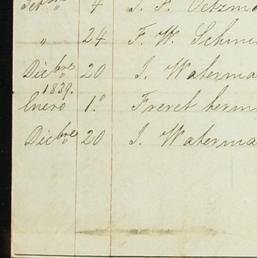 4 J. F.
" 24 F. W.
Dicbre 20 J. Waterma
1839.
Enero 1.º Freret herm
Dicbre 20 J. Waterma